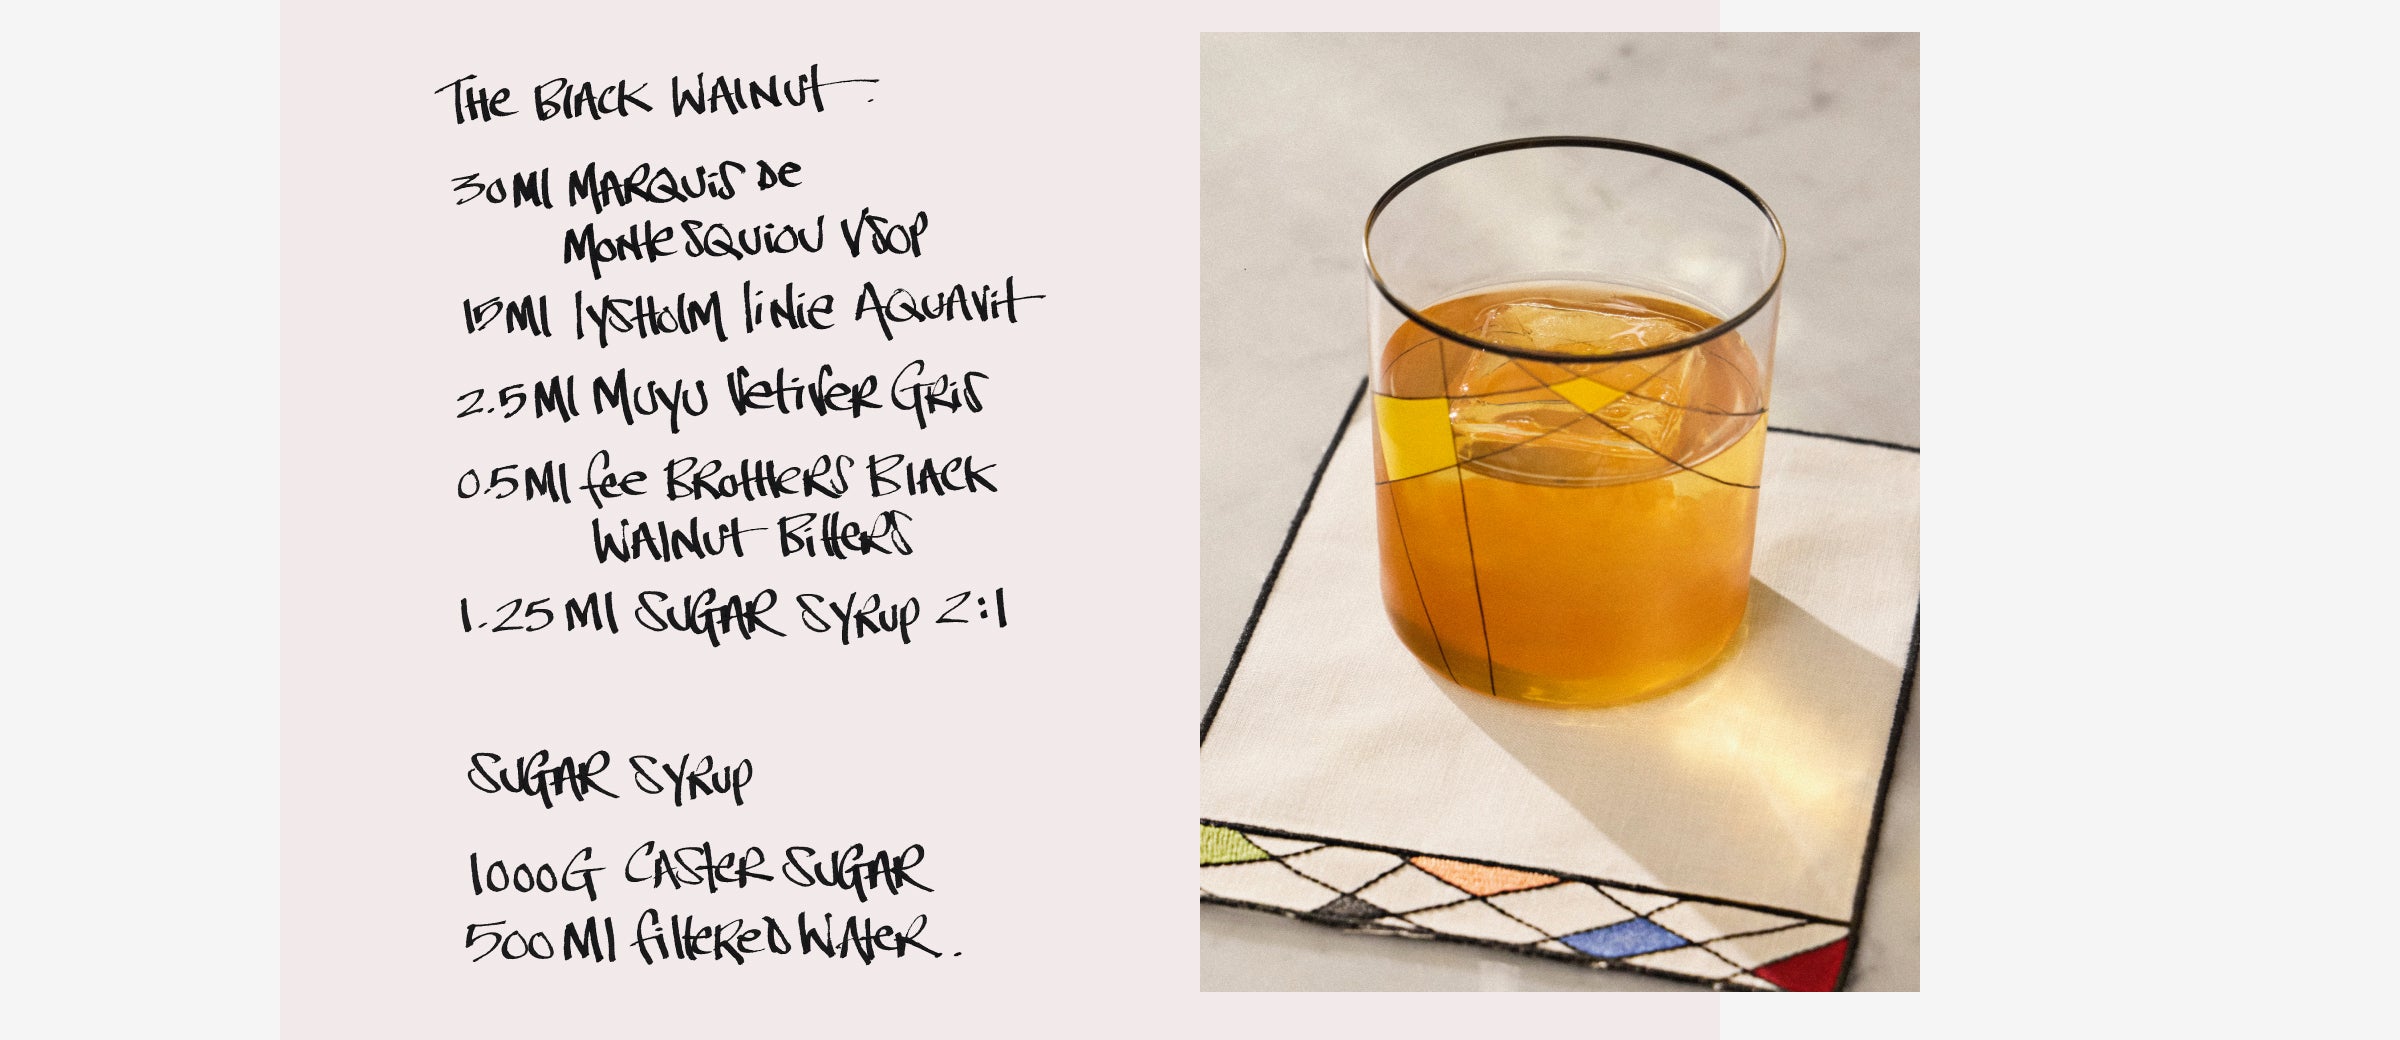 THE BLACK WALNUT.
30ML MARQUIS DE
MONTESQUIOU VSOP
15ML LYSHOLM LINIE AQUAVIT
2.5ML MUYU VETIVER GRIS
0.5ML FEE BROTHERS BLACK
WALNUT BITTERS
1.25ML SUGAR SYRUP 2:1
SUGAR SYRUP
1000G CASTER SUGAR
500ML FILTERED WATER.